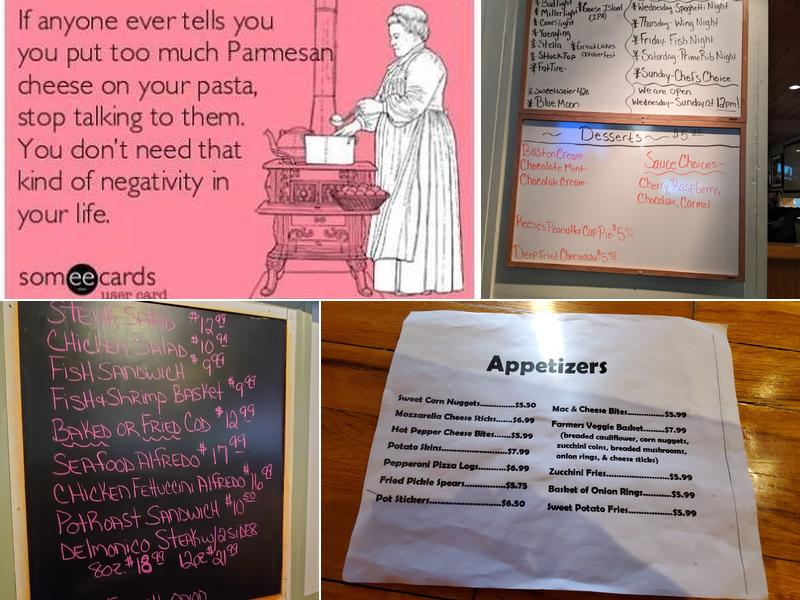 If anyone ever tells you
you put too much Parmesan
cheese on your pasta,
stop talking to them.
You don't need that
kind of negativity in
your life.
someecards
user card
* Bud light
* Miller light
* Coors light
* Yuengling
* Stella
* Fat Tire
* Sweetwater 420
* Blue Moon
* Goose Island
(IPA)
* Great Lakes
Octoberfest
* Wednesday Spaghetti Night
* Thursday- Wing Night
* Friday- Fish Night
* Saturday- Prime Rib Night
* Sunday- Chef's Choice
We are open
Wednesday-Sunday At 12pm!
Desserts $5
Boston Cream-
Chocolate Mint-
Chocolate Cream-
Reese's Peanutter Cup Pie $5
Deep Fried Cheesecake $5
Sauce Choices-
Cherry, Raspberry,
Chocolate, Carmel
STEAK SALAD $12.99
CHICKEN SALAD $10.99
FISH SANDWICH $9.99
FISH & SHRIMP BASKET $9.99
BAKED OR FRIED COD $12.99
SEAFOOD ALFREDO $17.99
CHICKEN FETTUCCINI ALFREDO $16.99
POT ROAST SANDWICH $10.50
DELMONICO STEAK W/2 SIDES
8oz. $18.99 12oz. $21.99
Appetizers
Sweet Corn Nuggets..............$5.50
Mozzarella Cheese Sticks.......$6.99
Hot Pepper Cheese Bites.......$5.99
Potato Skins...............$7.99
Pepperoni Pizza Logs..........$6.99
Fried Pickle Spears..........$5.75
Pot Stickers...............$6.50
Mac & Cheese Bites...........$5.99
Farmers Veggie Basket.......$7.99
(breaded cauliflower, corn nuggets,
zucchini coins, breaded mushrooms,
onion rings, & cheese sticks)
Zucchini Fries...............$5.99
Basket of Onion Rings.........$5.99
Sweet Potato Fries..........$5.99